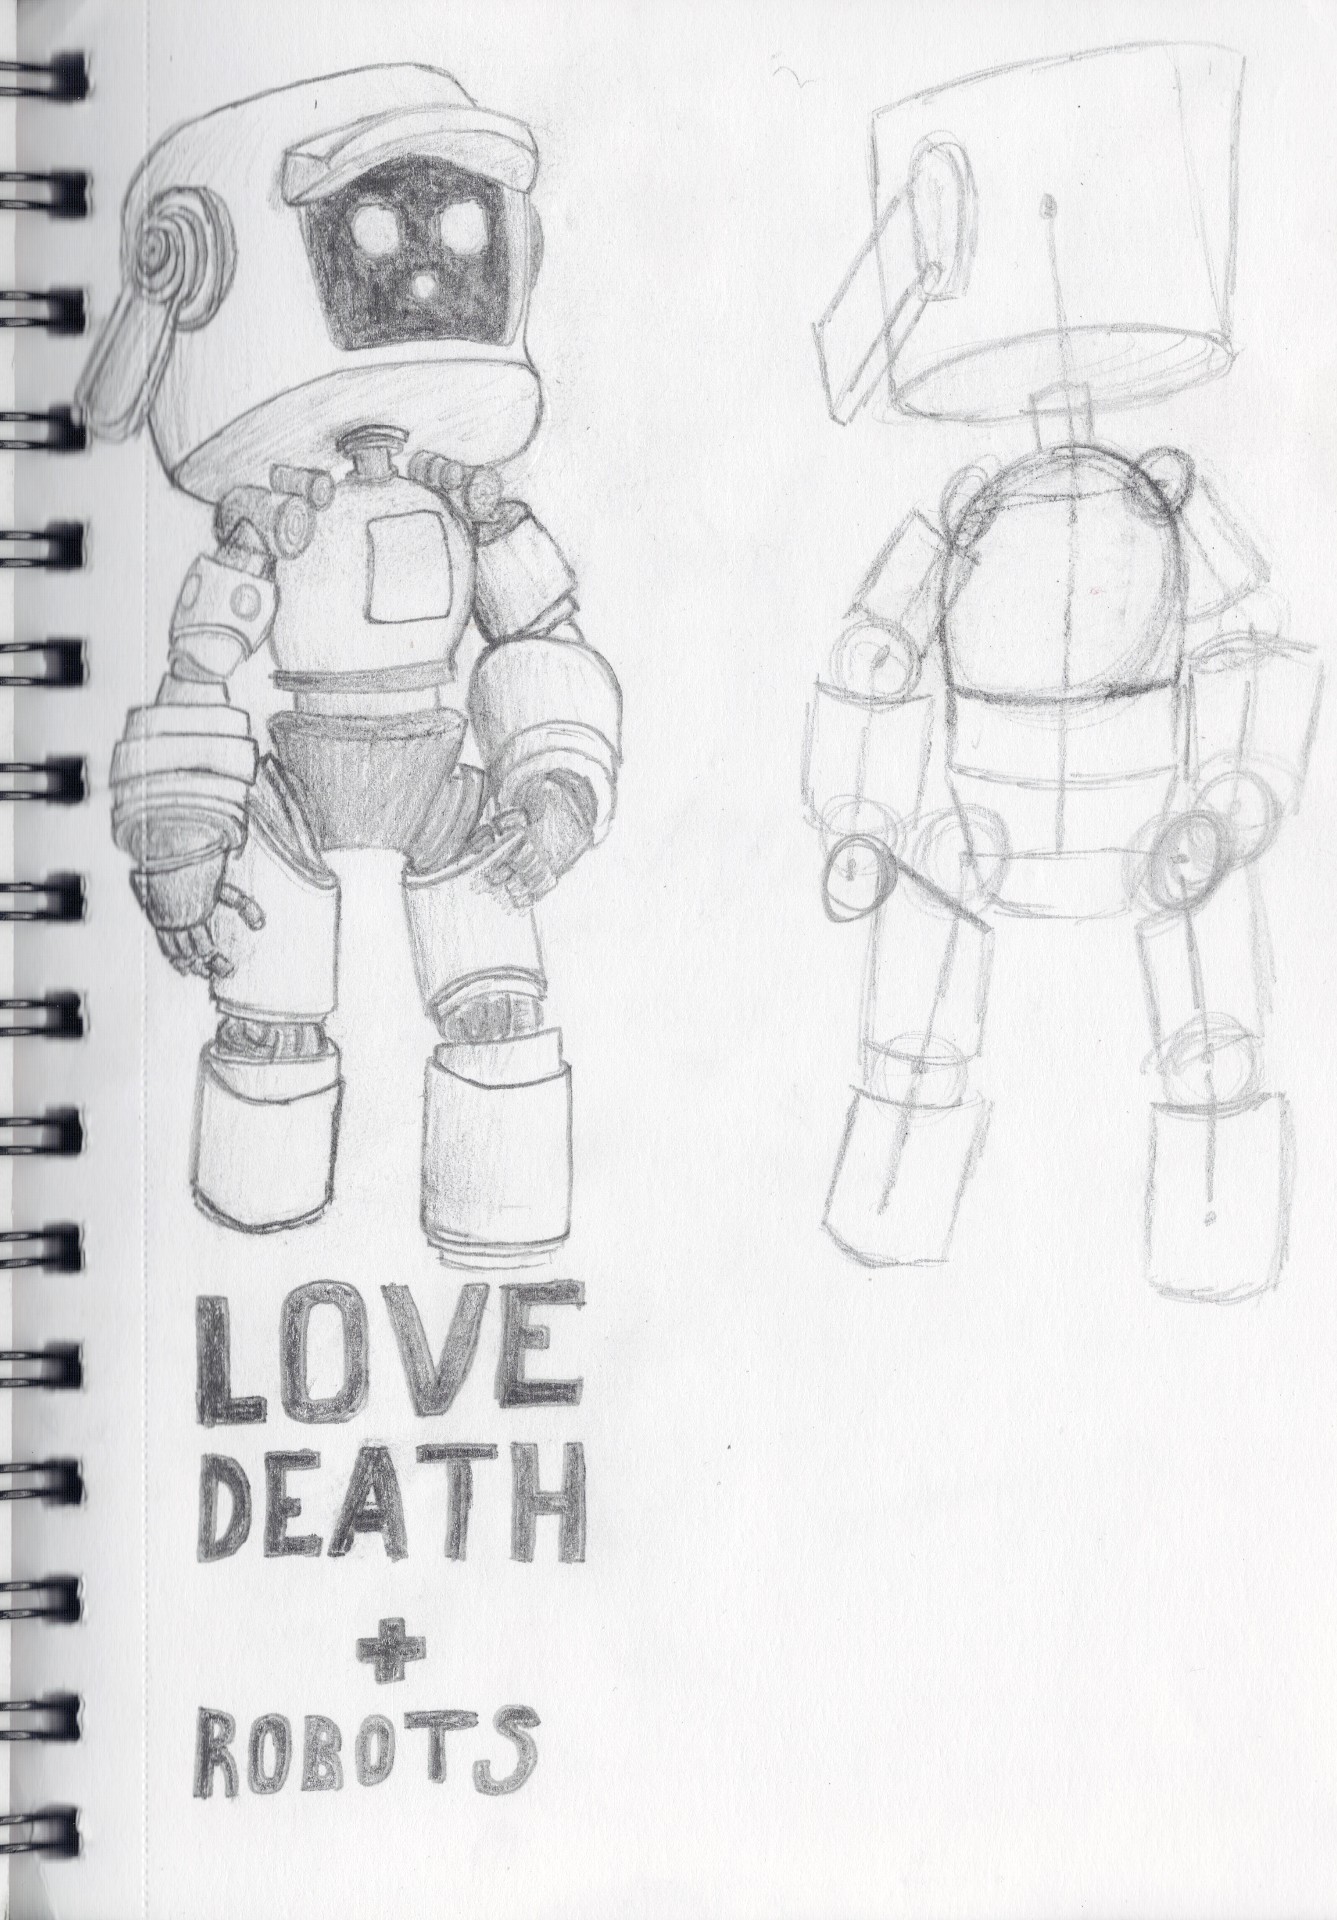 LOVE
DEATH
+
ROBOTS